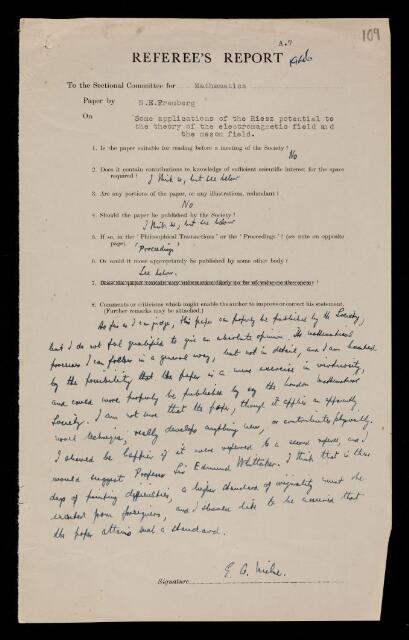 109
A.7
REFEREE'S REPORT
To the Sectional Committee for Mathematics
Paper by N.E.Fremberg
On Some applications of the Riesz potential to
the theory of the electromagnetic field and
the meson field.
1. Is the paper suitable for reading before a meeting of the Society?
No
2. Does it contain contributions to knowledge of sufficient scientific interest for the space
required? I think so, but see below
3. Are any portions of the paper, or any illustrations, redundant?
No
4. Should the paper be published by the Society?
I think so, but see below
5. If so, in the 'Philosophical Transactions' or the 'Proceedings'? (see note on opposite
page). 'Proceedings'
6. Or could it more appropriately be published by some other body?
See below.
7. Does the paper contain any information likely to be of value to the enemy?
8. Comments or criticisms which might enable the author to improve or correct his statement.
(Further remarks may be attached.)
As far as I can judge, this paper can properly be published by the Society,
but I do not feel qualified to give an absolute opinion. Its mathematical
processes I can follow in a general way, but not in detail, and I am haunted
by the possibility that the paper is a mere exercise in virtuosity,
and could more properly be published by eg the London Mathematical
Society. I am not sure that the paper, though it applies an apparently
novel technique, really develops anything new, or contributes physically.
I should be happier if it were referred to a second referee, and I
would suggest Professor Sir Edmund Whittaker. I think that in these
days of printing difficulties, a higher standard of originality must be
exacted from foreigners, and I should like to be assured that
the paper attains such a standard.
Signature E. A. Milne.